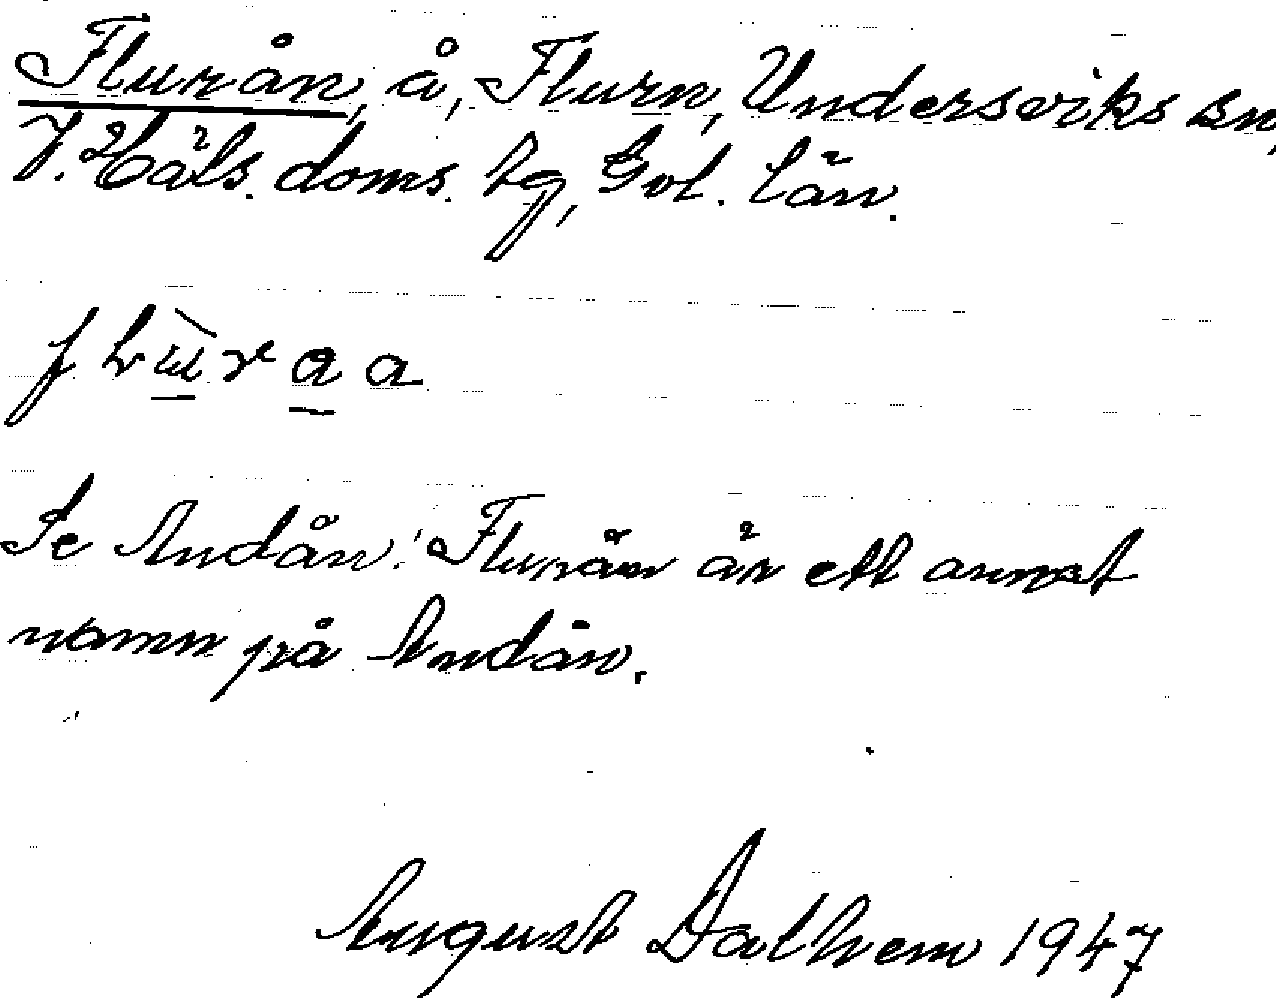 Flurån, å, Flurn, Undersviks sn,
V. Häls. doms. tg, Gvl. län.
Se Andån! Flurån är ett annat
namn på Andån.
August Dalhem 1947